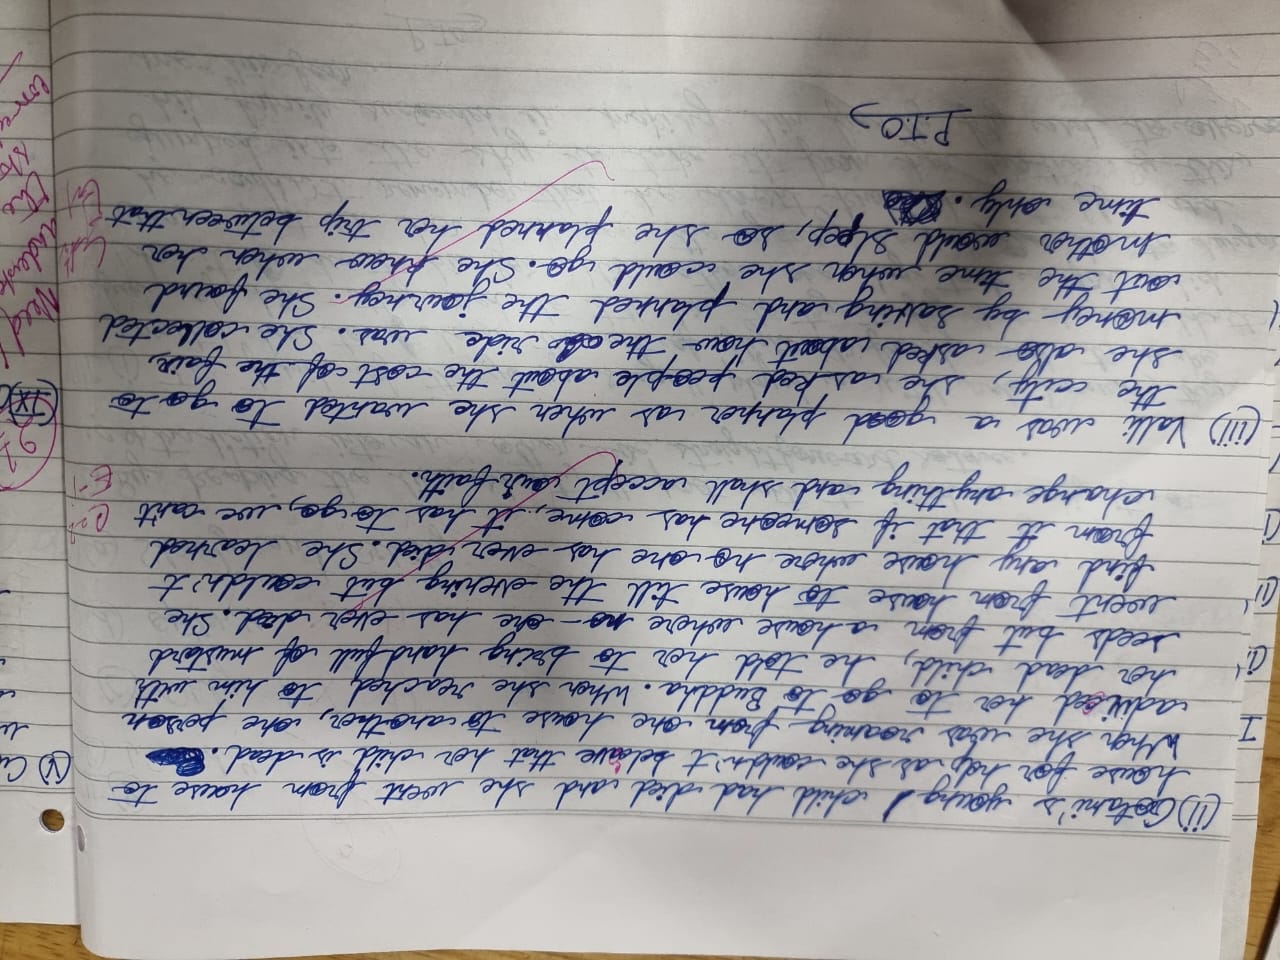 (ii) Gotami's young child had died and she went from house to
house for help as she couldn't beleave that her child is dead.
When she was roaming from one house to another, one person
adviced her to go to Buddha. When she reached to him with
her dead child, he told her to bring handfull of mustard
seeds but from a house where no-one has ever died. She
went from house to house till the evening but couldn't
find any house where no one has ever died. She learned
from it that if someone has come, it has to go, we can't
change anything and shall accept our faith.
(iii) Valli was a good planner as when she wanted to go to
the city, she asked people about the cost of the fair.
She also asked about how the ride was. She collected
money by saving and planned the journey. She found
out the time when she could go. She knew when her
mother would sleep, so she planned her trip between that
time only.
P.T.O
C-2
E-1
Need
understa
the
(ix)
(v)